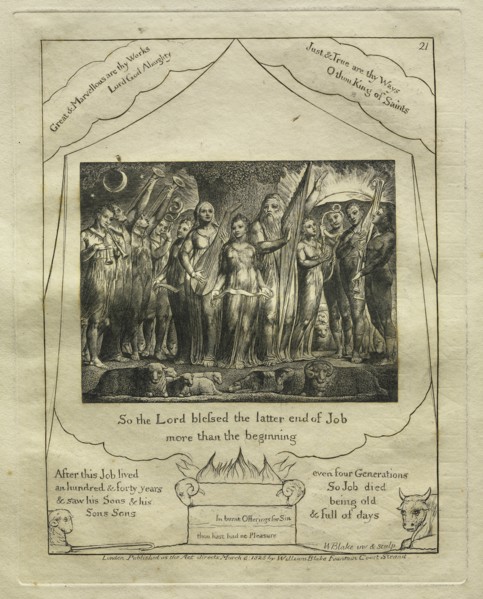 21
Great & Marvellous are thy Works
Lord God Almighty
Just & True are thy Ways
O thou King of Saints
So the Lord blessed the latter end of Job
more than the beginning
After this Job lived
an hundred & forty years
& saw his Sons & his
Sons Sons
even four Generations
So Job died
being old
& full of days
In burnt Offerings for Sin
thou hast had no Pleasure
W Blake inv & sculp
London. Published as the Act directs March 8 1825 by William Blake Fountain Court Strand